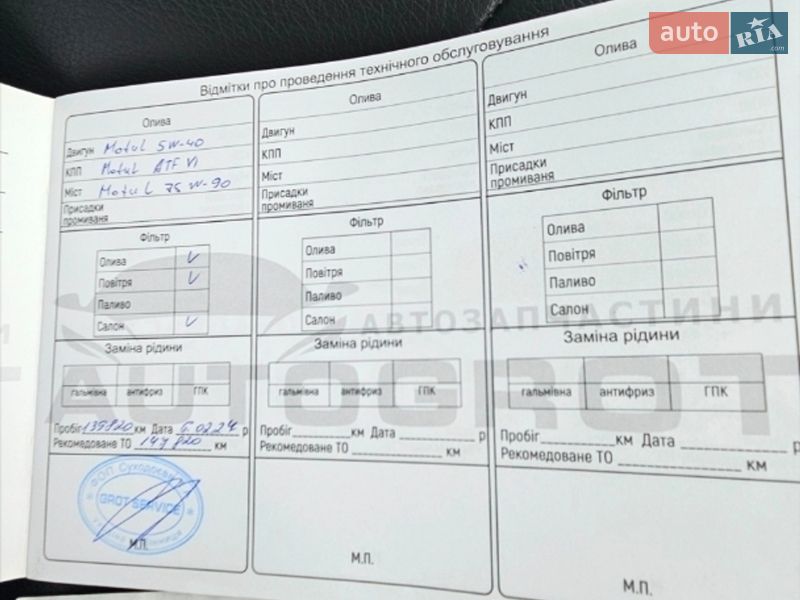 auto RIA .com
Відмітки про проведення технічного обслуговування
Олива
Двигун Motul 5W-40
КПП Motul ATF VI
Міст Motul 75W-90
Присадки
промиваня
Фільтр
Олива V
Повітря V
Паливо
Салон V
Заміна рідини
гальмівна антифриз ГПК
Пробіг 139820 км Дата 5.02.24 р
Рекомедоване ТО 149 820 км
ФОП
GROT SERVICE
М.П.
Олива
Двигун
КПП
Міст
Присадки
промиваня
Фільтр
Олива
Повітря
Паливо
Салон
Заміна рідини
гальмівна антифриз ГПК
Пробіг км Дата р
Рекомедоване ТО км
М.П.
Олива
Двигун
КПП
Міст
Присадки
промиваня
Фільтр
Олива
Повітря
Паливо
Салон
Заміна рідини
гальмівна антифриз ГПК
Пробіг км Дата р
Рекомедоване ТО км
М.П.
АВТОЗАПЧАСТИНИ
AUTOGROT